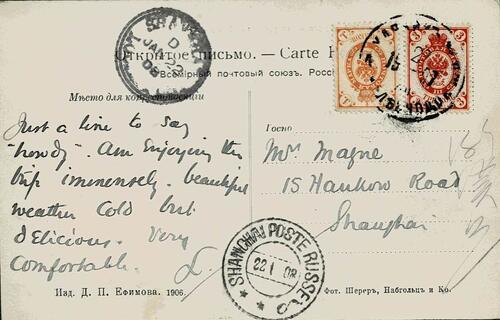 JAN 22
08
Открытое письмо. — Carte
Всемірный почтовый союзъ.
Мѣсто для корреспонденціи
Just a line to say
"howdy". Am Enjoying the
trip immensely. beautiful
weather Cold but
delicious. Very
comfortable. L.
Госпо
Mrs Mayne
15 Hankow Road
Shanghai
SHANGHAI POSTE RUSSE
22 1 08
Изд. Д. П. Ефимова. 1906.
Фот. Шереръ, Набгольцъ и Ко.